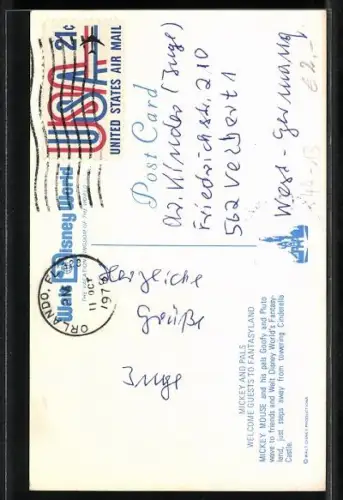 Walt Disney World
Post Card
USA 21c
UNITED STATES AIR MAIL
ORLANDO, FL
11 OCT
197
Herzliche
Grüße
Inge
(Inge)
Friedrichstr. 210
562 Velbert 1
West-Germany
€ 2,-
MICKEY AND PALS
WELCOME GUESTS TO FANTASYLAND
MICKEY MOUSE and his pals Goofy and Pluto
wave to friends and Walt Disney World's Fantasy-
land, just steps away from towering Cinderella
Castle.
© WALT DISNEY PRODUCTIONS